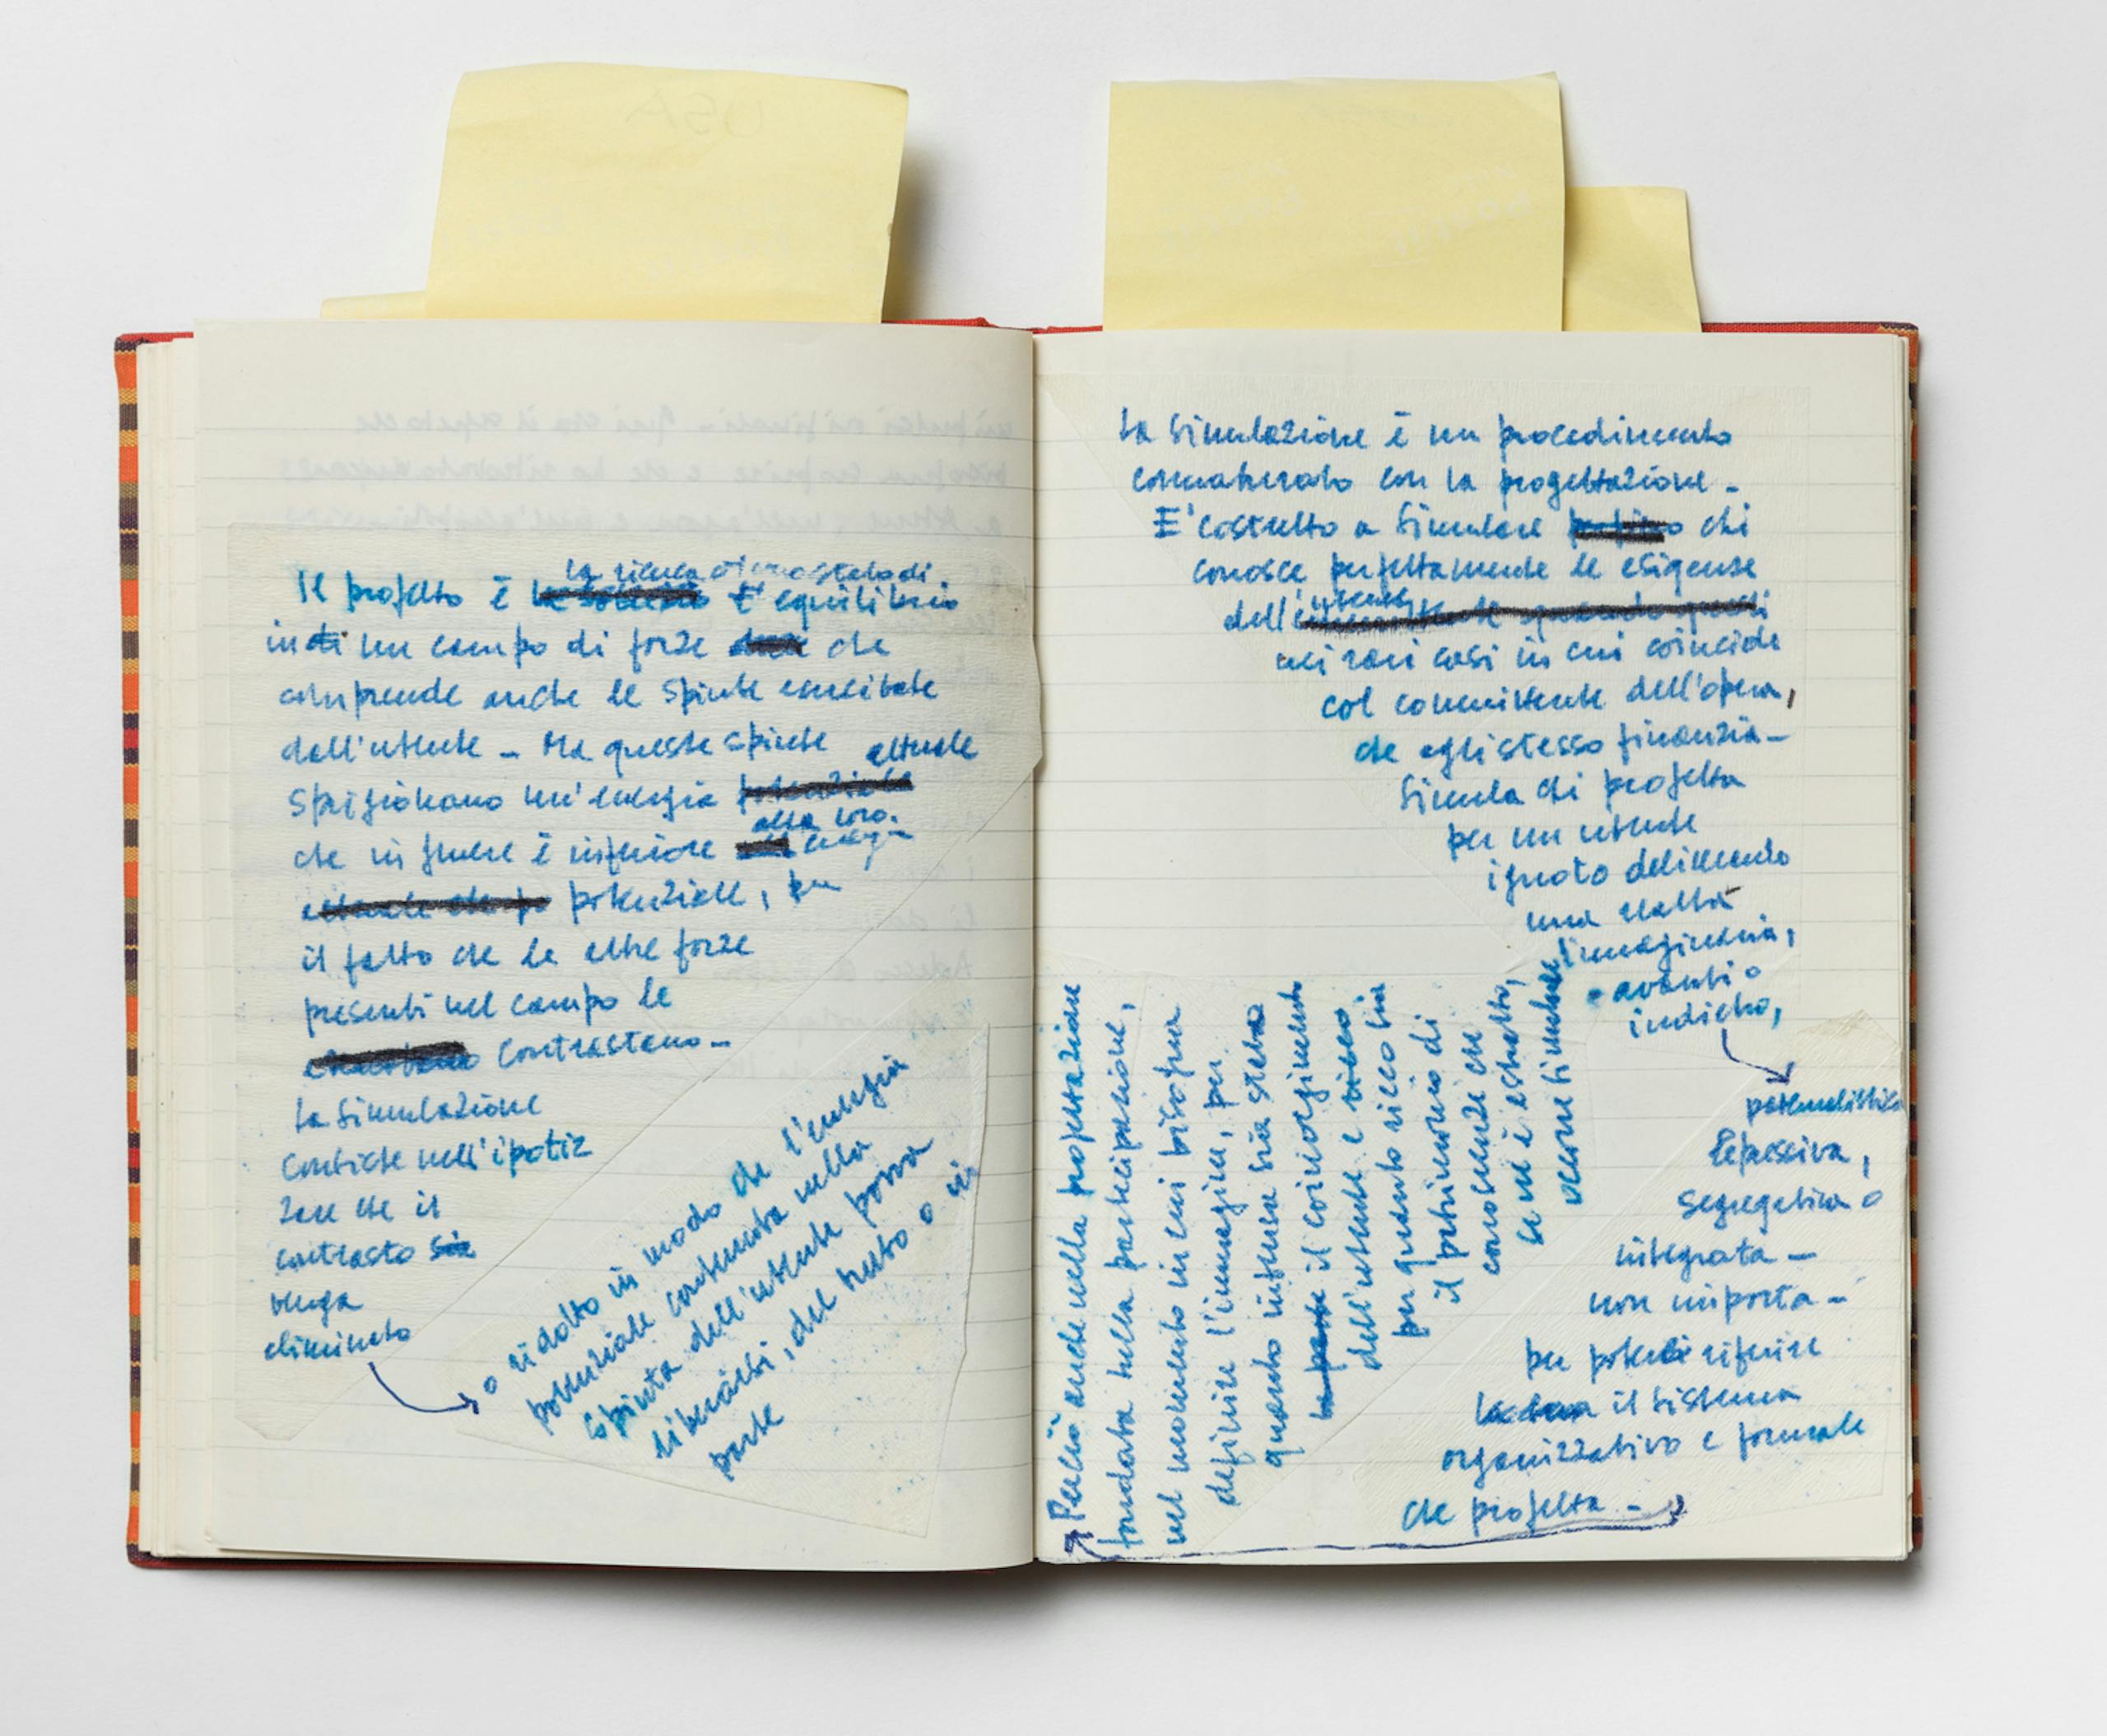 USA
la ricerca di uno stato di
Il progetto è equilibrio
in di un campo di forze che
comprende anche le spinte
dell'utente - Ma queste spinte
attuale
sprigionano un'energia potenziale
che in genere è inferiore
alla loro energia
potenziale, per
il fatto che le altre forze
presenti nel campo le
contrastano -
La simulazione
consiste nell'ipotiz
zare che il
contrasto sia
venga
eliminato
o ridotto in modo che l'energia
potenziale contenuta nella
spinta dell'utente possa
liberarsi, del tutto o in
parte
La simulazione è un procedimento
connaturato con la progettazione -
E' costretto a simulare chi
conosce perfettamente le esigenze
dell'utente
nei rari casi in cui coincide
col committente dell'opera,
che egli stesso finanzia -
Simula chi progetta
per un utente
ignoto delineando
una realtà
immaginaria,
avanti o
indietro,
paternalistica
repressiva,
segregativa o
integrata -
non importa -
per poterci riferire
il sistema
organizzativo e formale
che progetta -
Perciò anche nella progettazione
fondata nella partecipazione,
nel momento in cui bisogna
definire l'immagine, per
quanto intenso sia stato
la parte il coinvolgimento
dell'utente e
per quanto ricco sia
il patrimonio di
conoscenze che
se ne è estratto,
occorre simulare